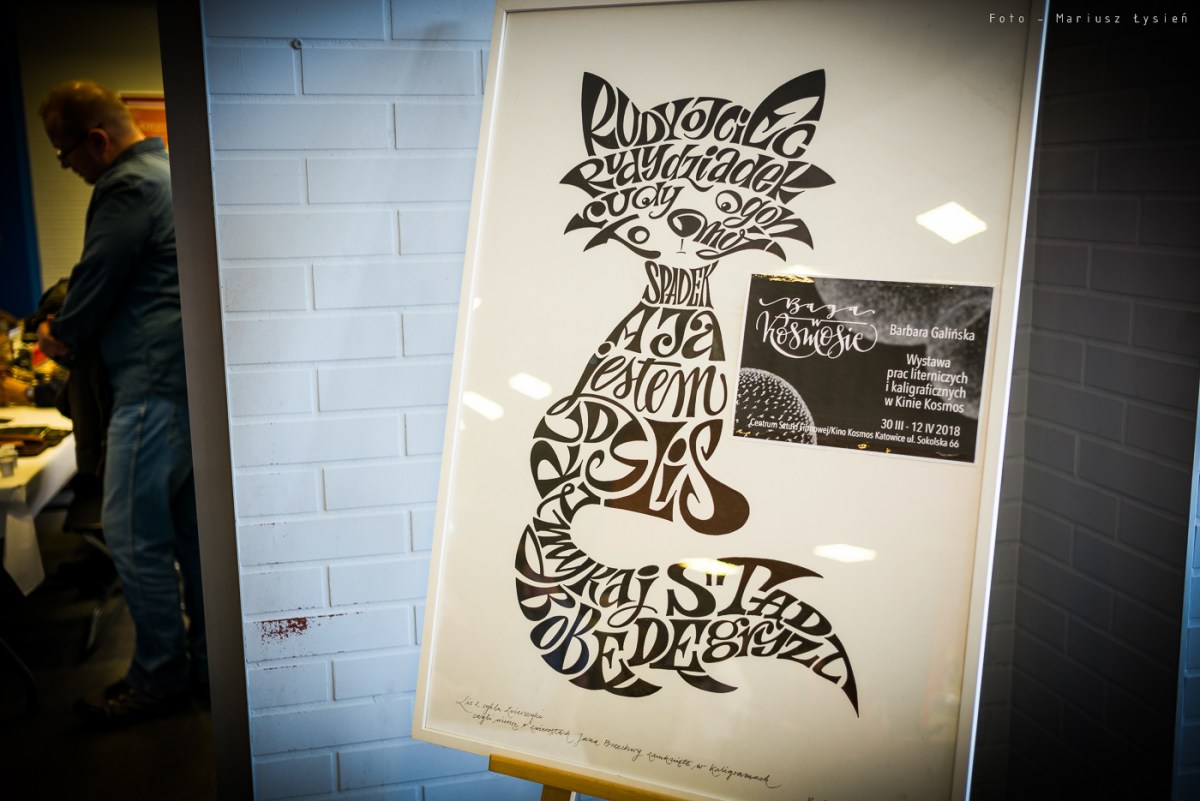 Foto - Mariusz Łysień
RUDY OJCIEC
Rudy dziadek
rudy ogon
to mój
SPADEK
A JA
jestem
RUDY
LiS
zmykaj STĄD
BO BĘDĘ gryzł
Baga
w
Kosmosie
Barbara Galińska
Wystawa
prac literniczych
i kaligraficznych
w Kinie Kosmos
30 III - 12 IV 2018
Centrum Sztuki Filmowej/Kino Kosmos Katowice ul. Sokolska 66
Lis z cyklu
czyli o zwierzętach Jana Brzechwy zamknięte w kaligramach